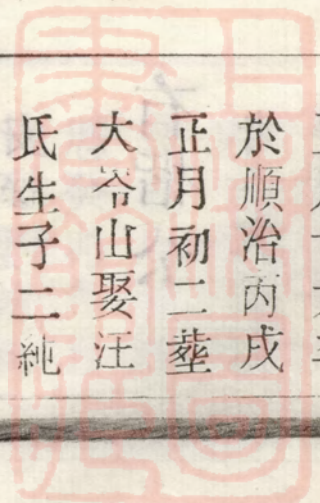 於順治丙戌
正月初二塟
大岺山娶汪
氏生子二純